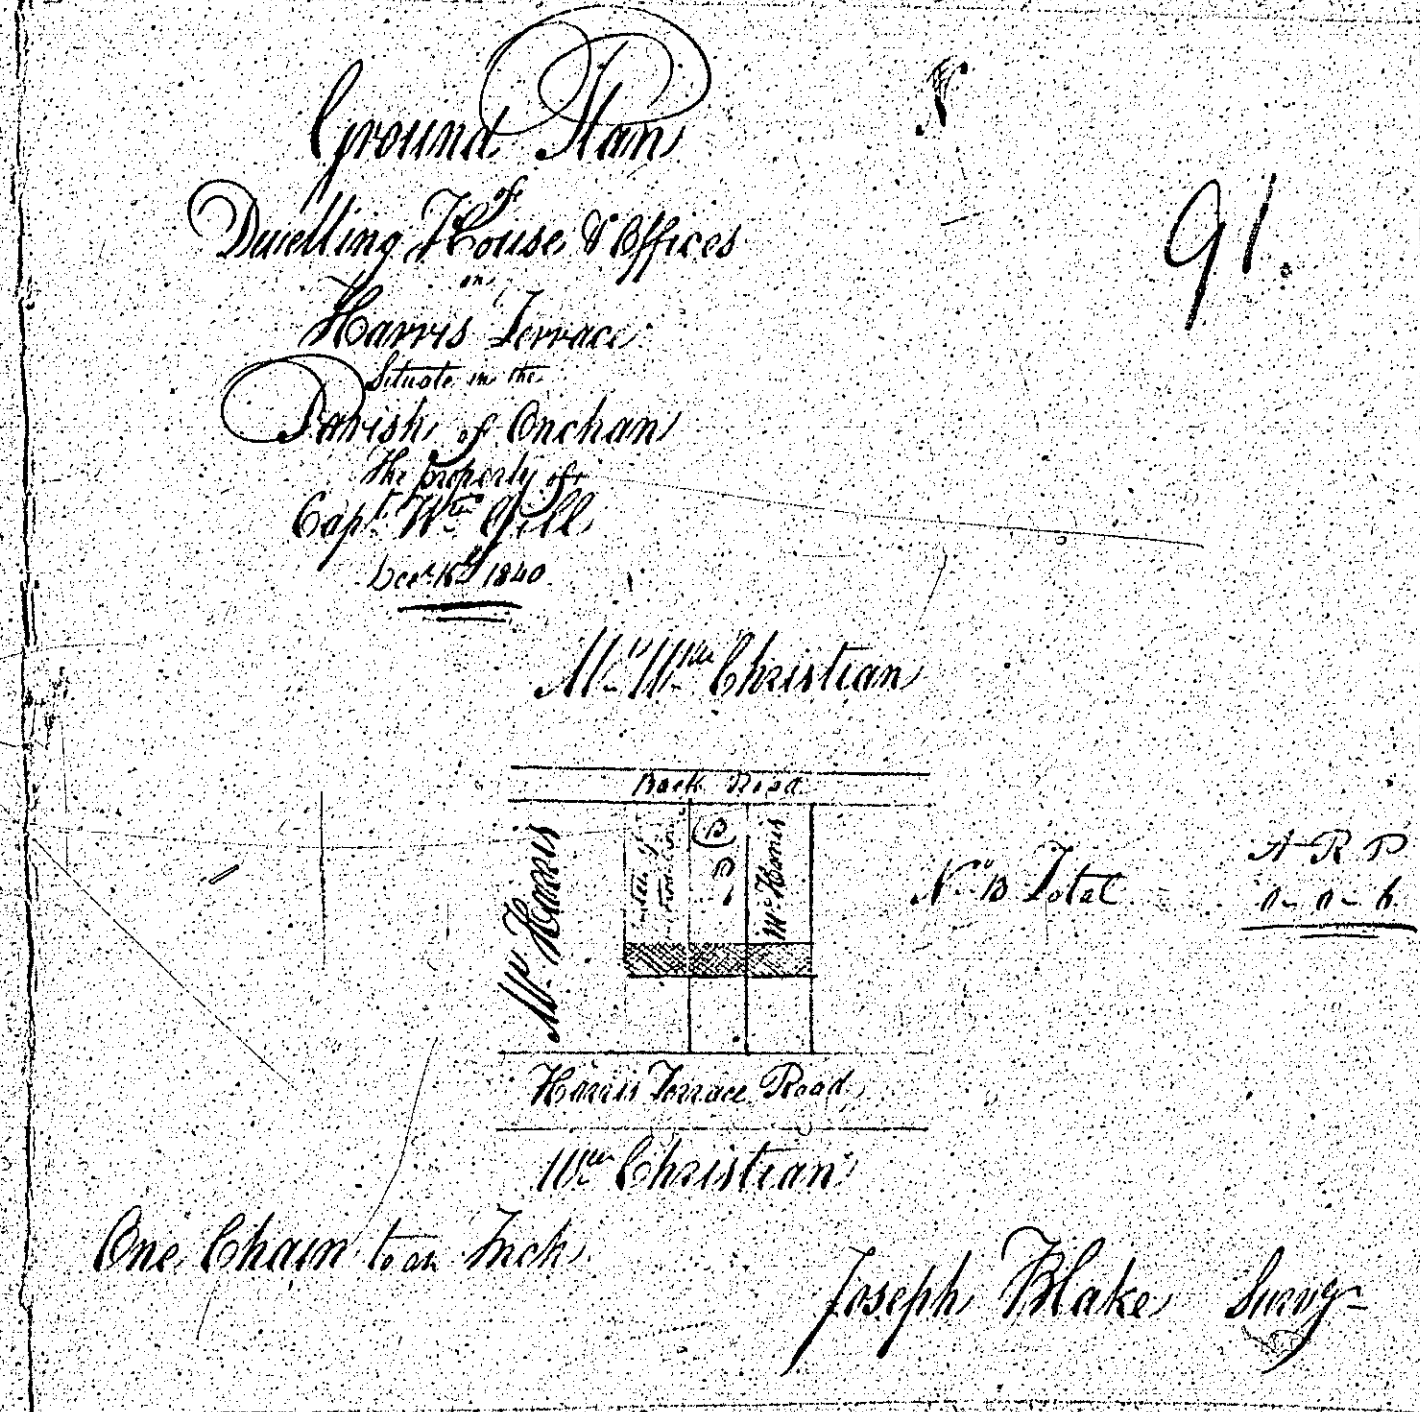 Ground Plan
of
Dwelling House & Offices
in
Harris Terrace
Situate in the
Parish of Onchan
The property of
Capt. Wm Gill
1840
91.
Mr. Wm Christian
Back Road
Mr. Harris
B
Mr. Harris
No. B Total
A R P
0 - 0 - 6
Harris Terrace Road
Wm Christian
One Chain to an Inch
Joseph Blake Survg